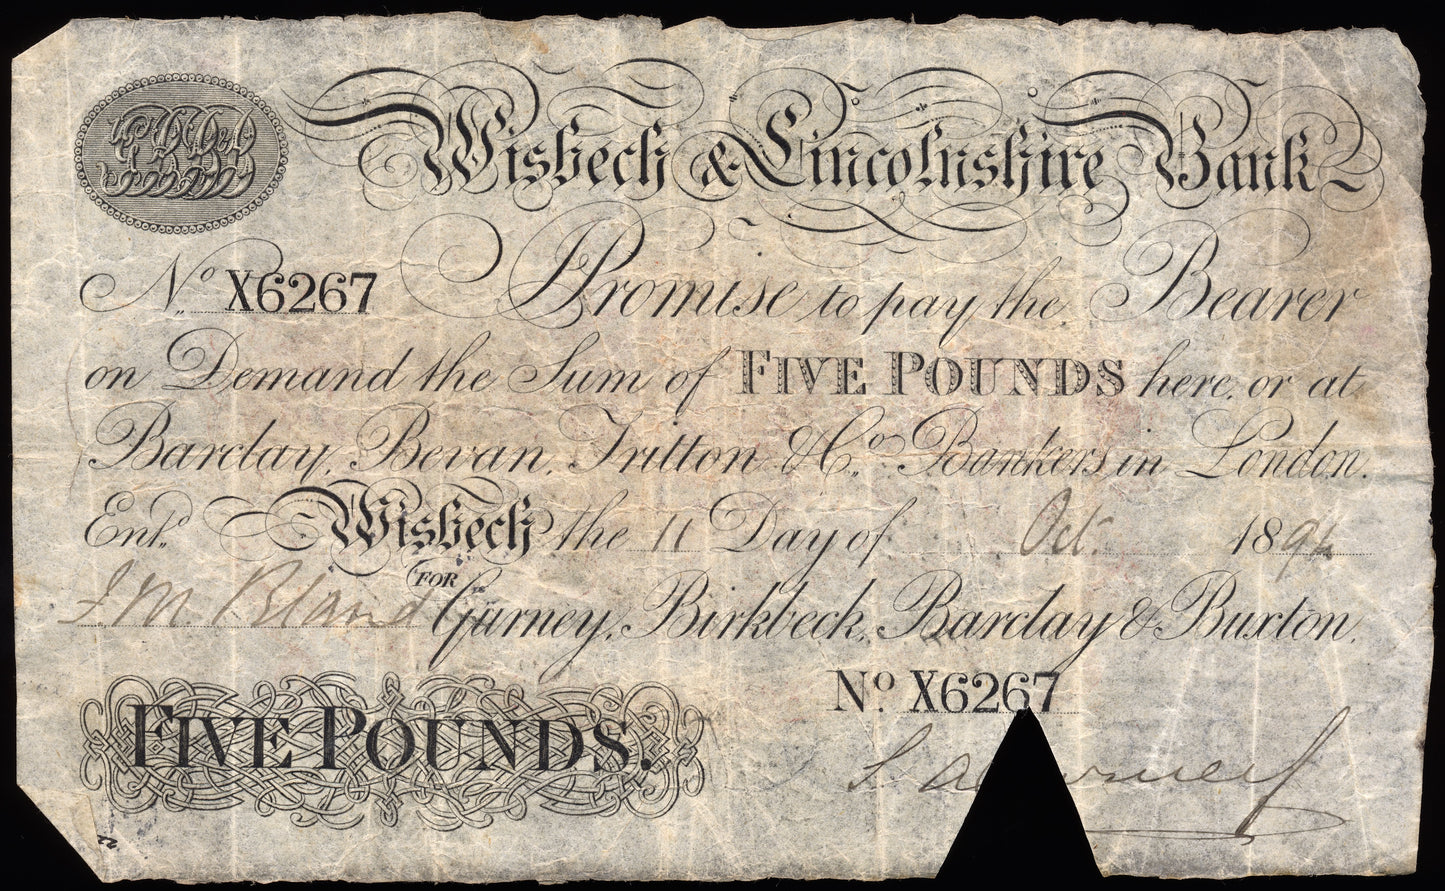 Wisbech & Lincolnshire Bank
No. X6267 Promise to pay the Bearer
on Demand the Sum of FIVE POUNDS here, or at
Barclay, Bevan, Tritton & Co. Bankers in London.
Entd. Wisbech the 11 Day of Oct. 1894
J. M. Bland FOR Gurney, Birkbeck, Barclay & Buxton.
No. X6267
FIVE POUNDS.